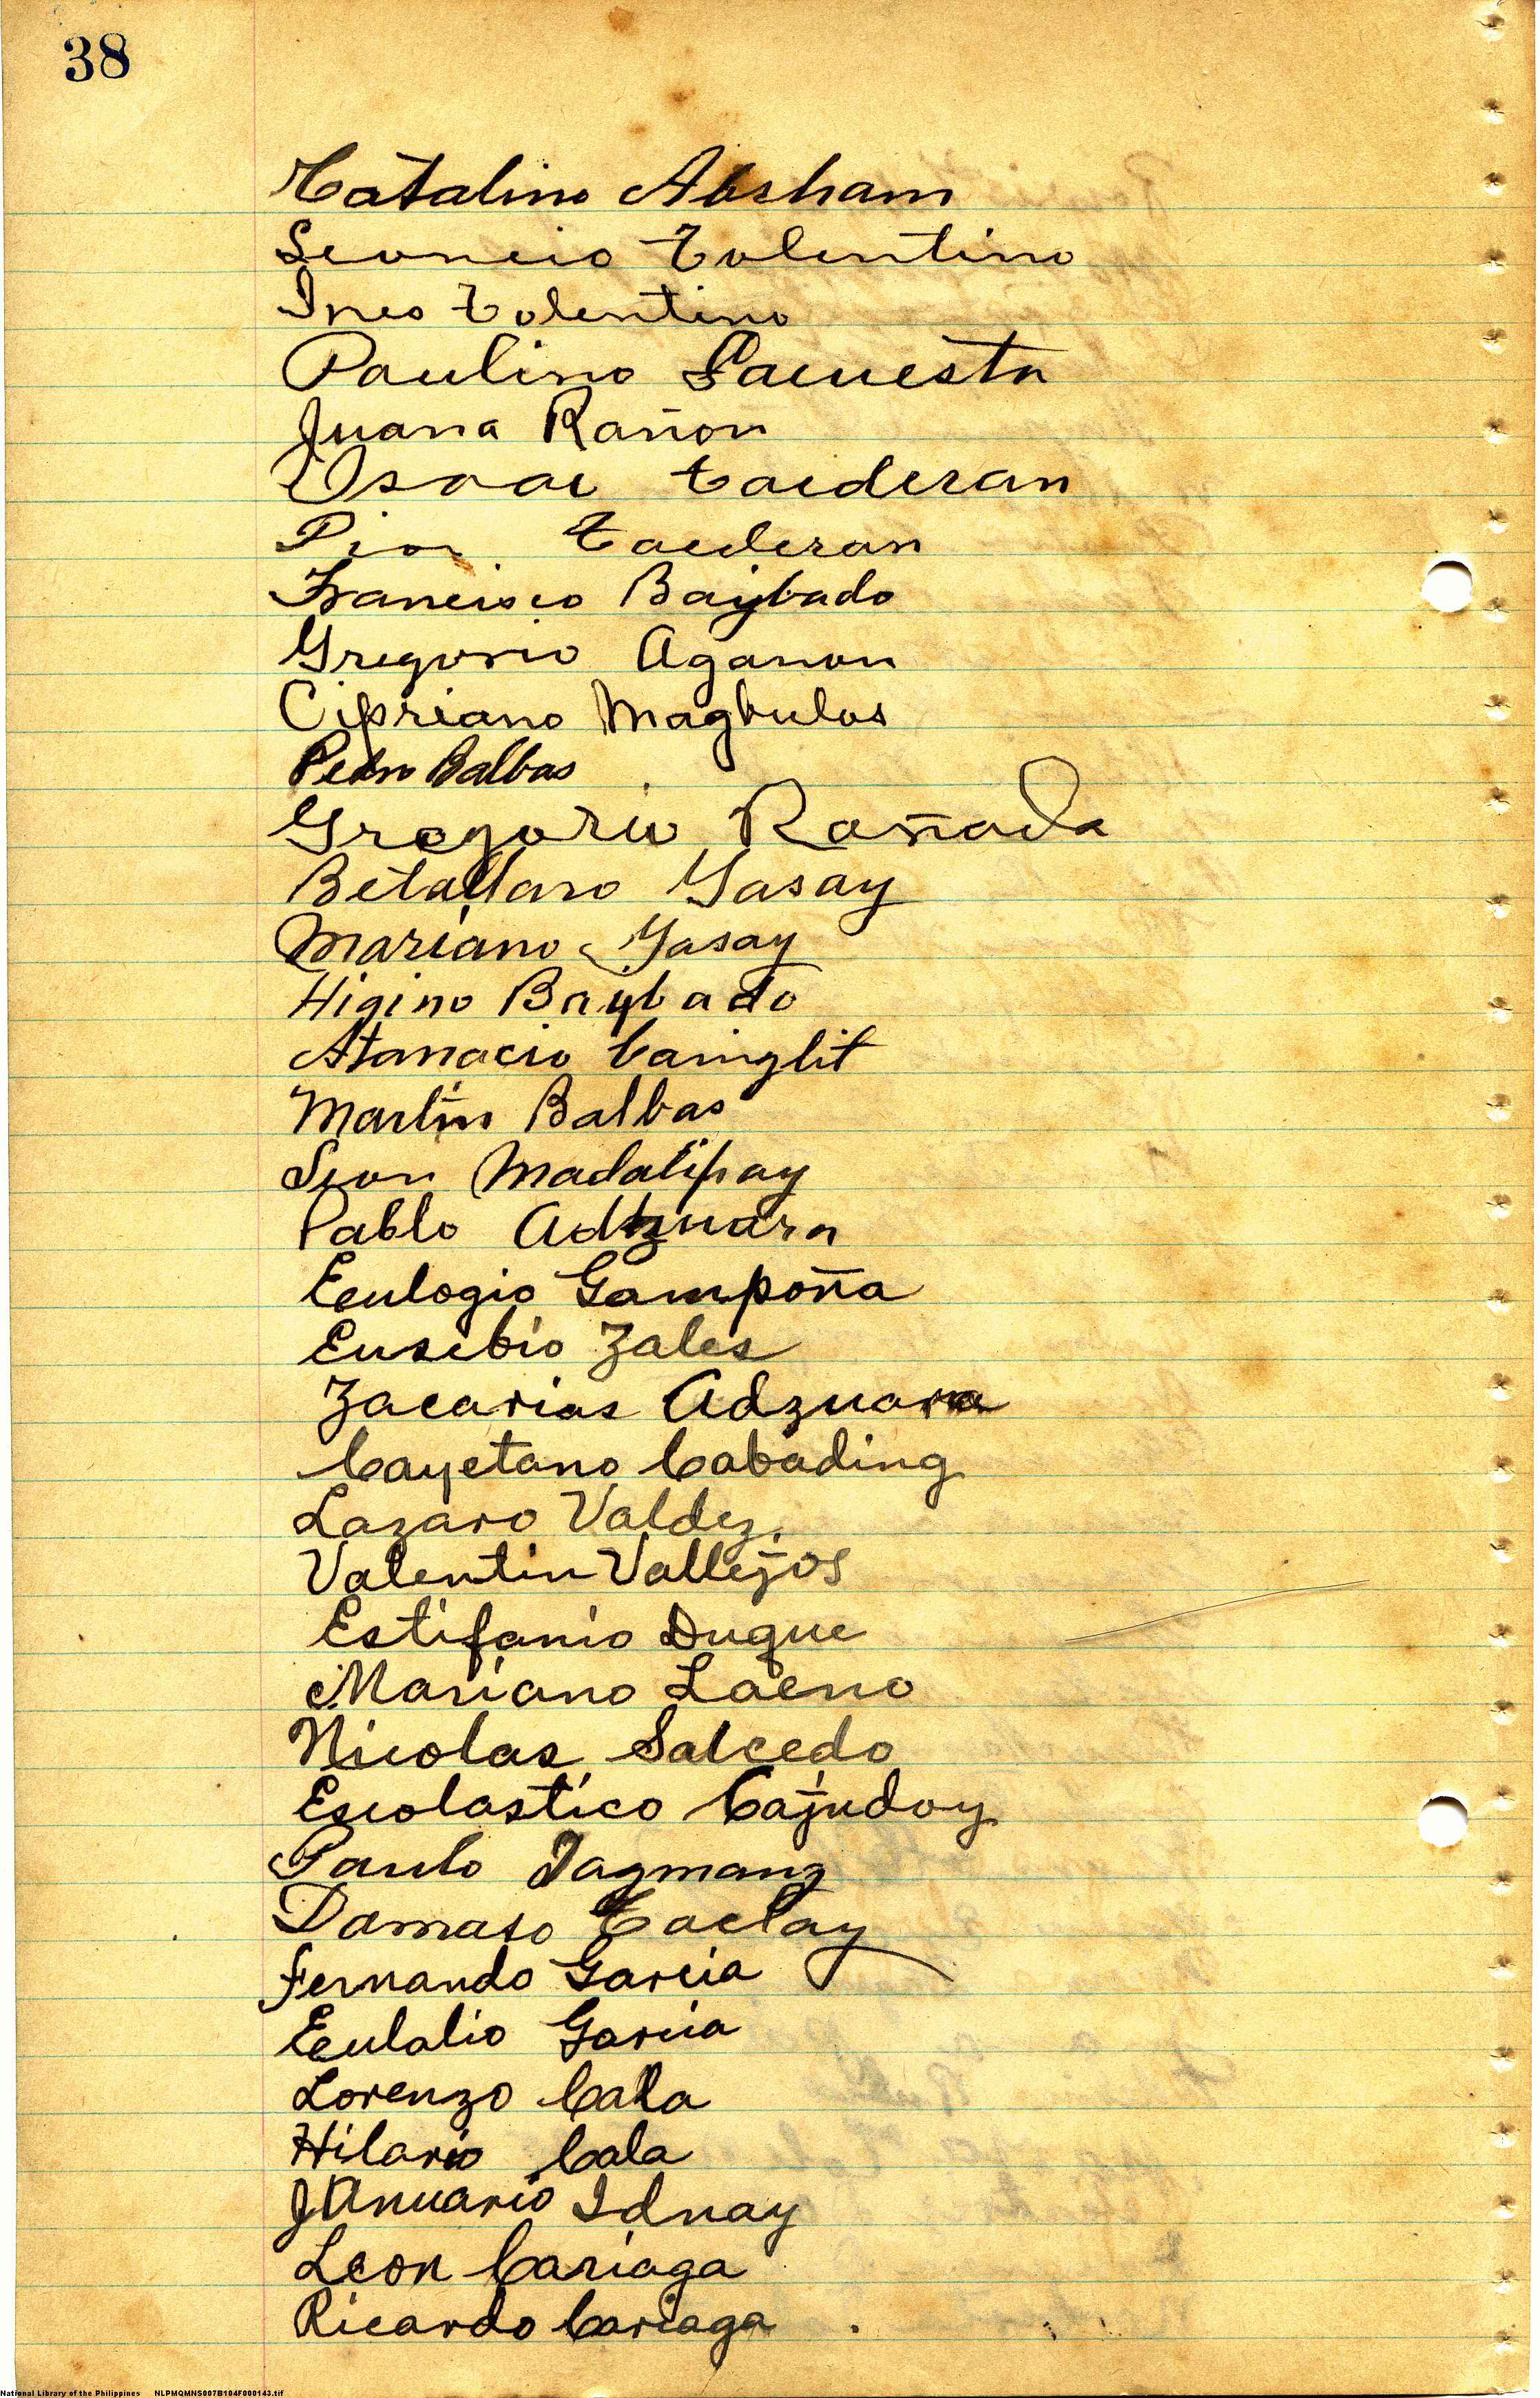 38
Catalino Absham
Leoncio Tolentino
Ines Tolentino
Paulino Lacuesta
Juana Rañon
Isaac Tacderan
Pio Tacderan
Francisco Baybado
Gregorio Aganon
Cipriano Magbulos
Pedro Balbas
Gregorio Rañada
Betaliano Yasay
Mariano Yasay
Higino Baybado
Atanacio Cainglit
Martin Balbas
Leon Madalipay
Pablo Adzuara
Eeulogio Gampoña
Eusebio Zales
Zacarias Adzuara
Cayetano Cabading
Lazaro Valdez.
Valentin Vallejos
Estifanio Duque
Mariano Laeno
Nicolas Salcedo
Escolastico Cajudoy
Paulo Dagmang
Damaso Taclay
Fernando Garcia
Eeulalio Garcia
Lorenzo Cala
Hilario Cala
JAnuario Idnay
Leon Cariaga
Ricardo Cariaga
National Library of the Philippines NLPMQMNS007B104F000143.tif